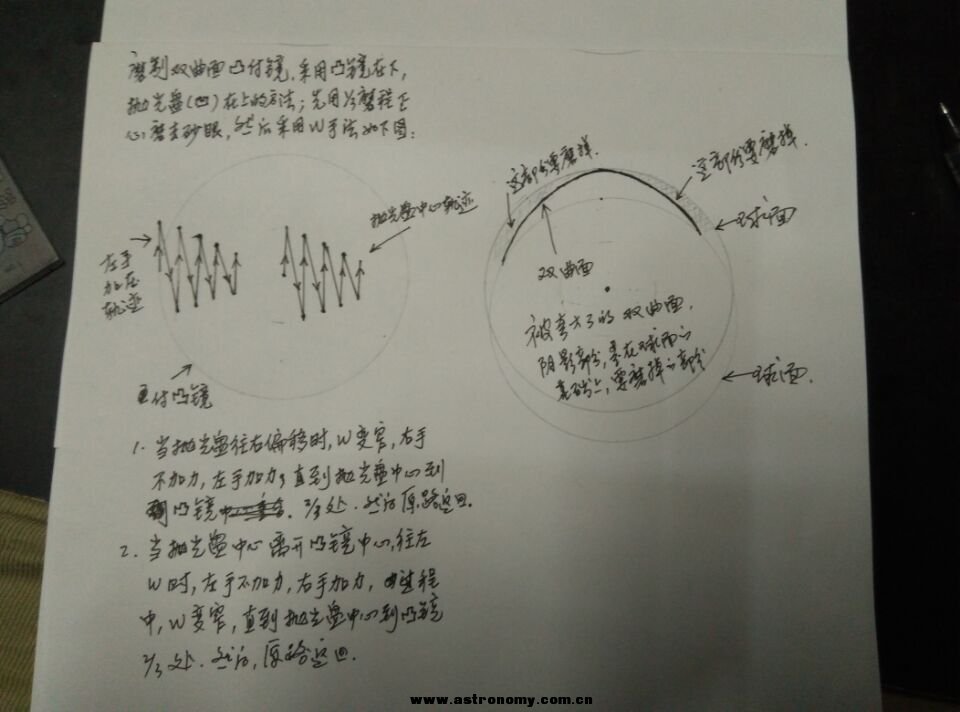 磨制双曲面凸付镜,采用凸镜在下,
抛光盘(凹)在上的方法;先用冷磨程正
心磨去砂眼,然后采用W手法如下图:
这部分要磨掉.
这部分要磨掉.
抛光盘中心轨迹
球面
左手
加压
轨迹
双曲面
被夸大了的双曲面,
阴影部分,是在球面的
基础上,要磨掉的部分
球面.
凸镜
1. 当抛光盘往右偏移时,W变窄,右手
不加力,左手加力,直到抛光盘中心到
凸镜 2/3处.然后原路返回.
2. 当抛光盘中心离开凸镜中心,往左
W时,左手不加力,右手加力,过程
中,W变窄,直到抛光盘中心到凸镜
2/3处.然后,原路返回.
www.astronomy.com.cn